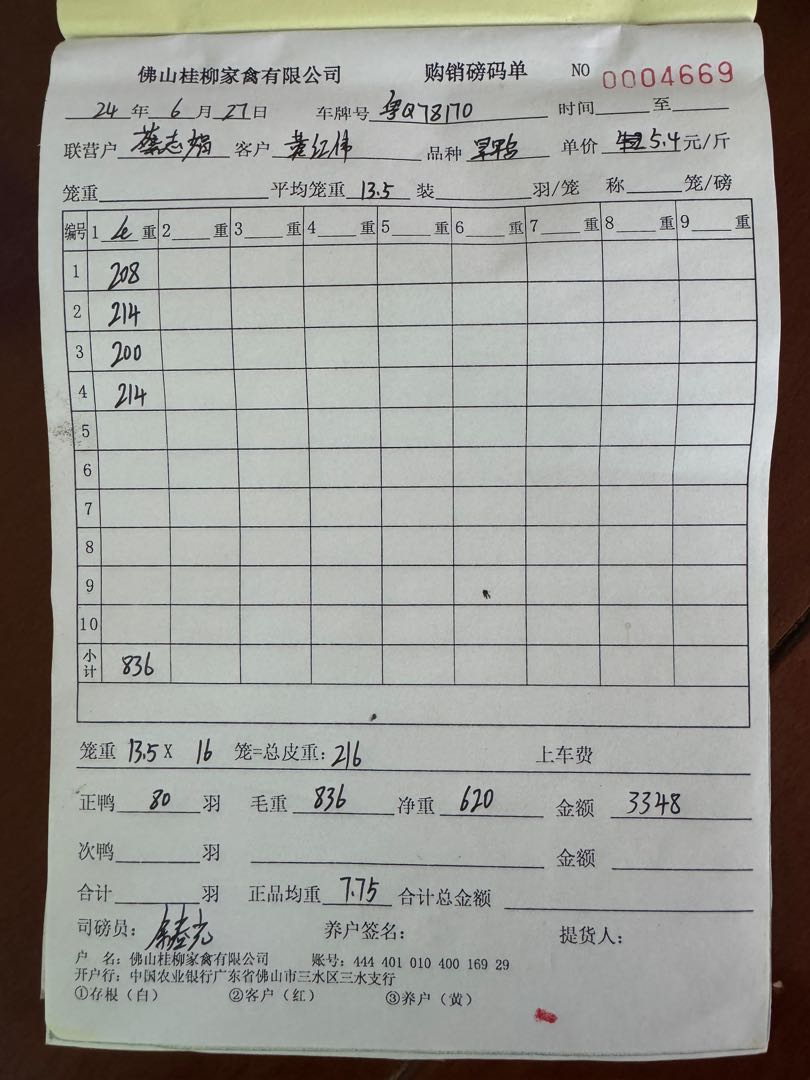 佛山桂柳家禽有限公司 购销磅码单 NO 0004669
24 年 6 月 27 日 车牌号 粤Q78170 时间 至
联营户 蔡志娟 客户 黄红伟 品种 单价 5.4 元/斤
笼重 平均笼重 13.5 装 羽/笼 称 笼/磅
编号 1 重 2 重 3 重 4 重 5 重 6 重 7 重 8 重 9 重
1 208
2 214
3 200
4 214
5
6
7
8
9
10
小计 836
笼重 13.5 X 16 笼=总皮重: 216 上车费
正鸭 80 羽 毛重 836 净重 620 金额 3348
次鸭 羽 金额
合计 羽 正品均重 7.75 合计总金额
司磅员: 养户签名: 提货人:
户 名: 佛山桂柳家禽有限公司 账号: 444 401 010 400 169 29
开户行: 中国农业银行广东省佛山市三水区三水支行
①存根(白) ②客户(红) ③养户(黄)